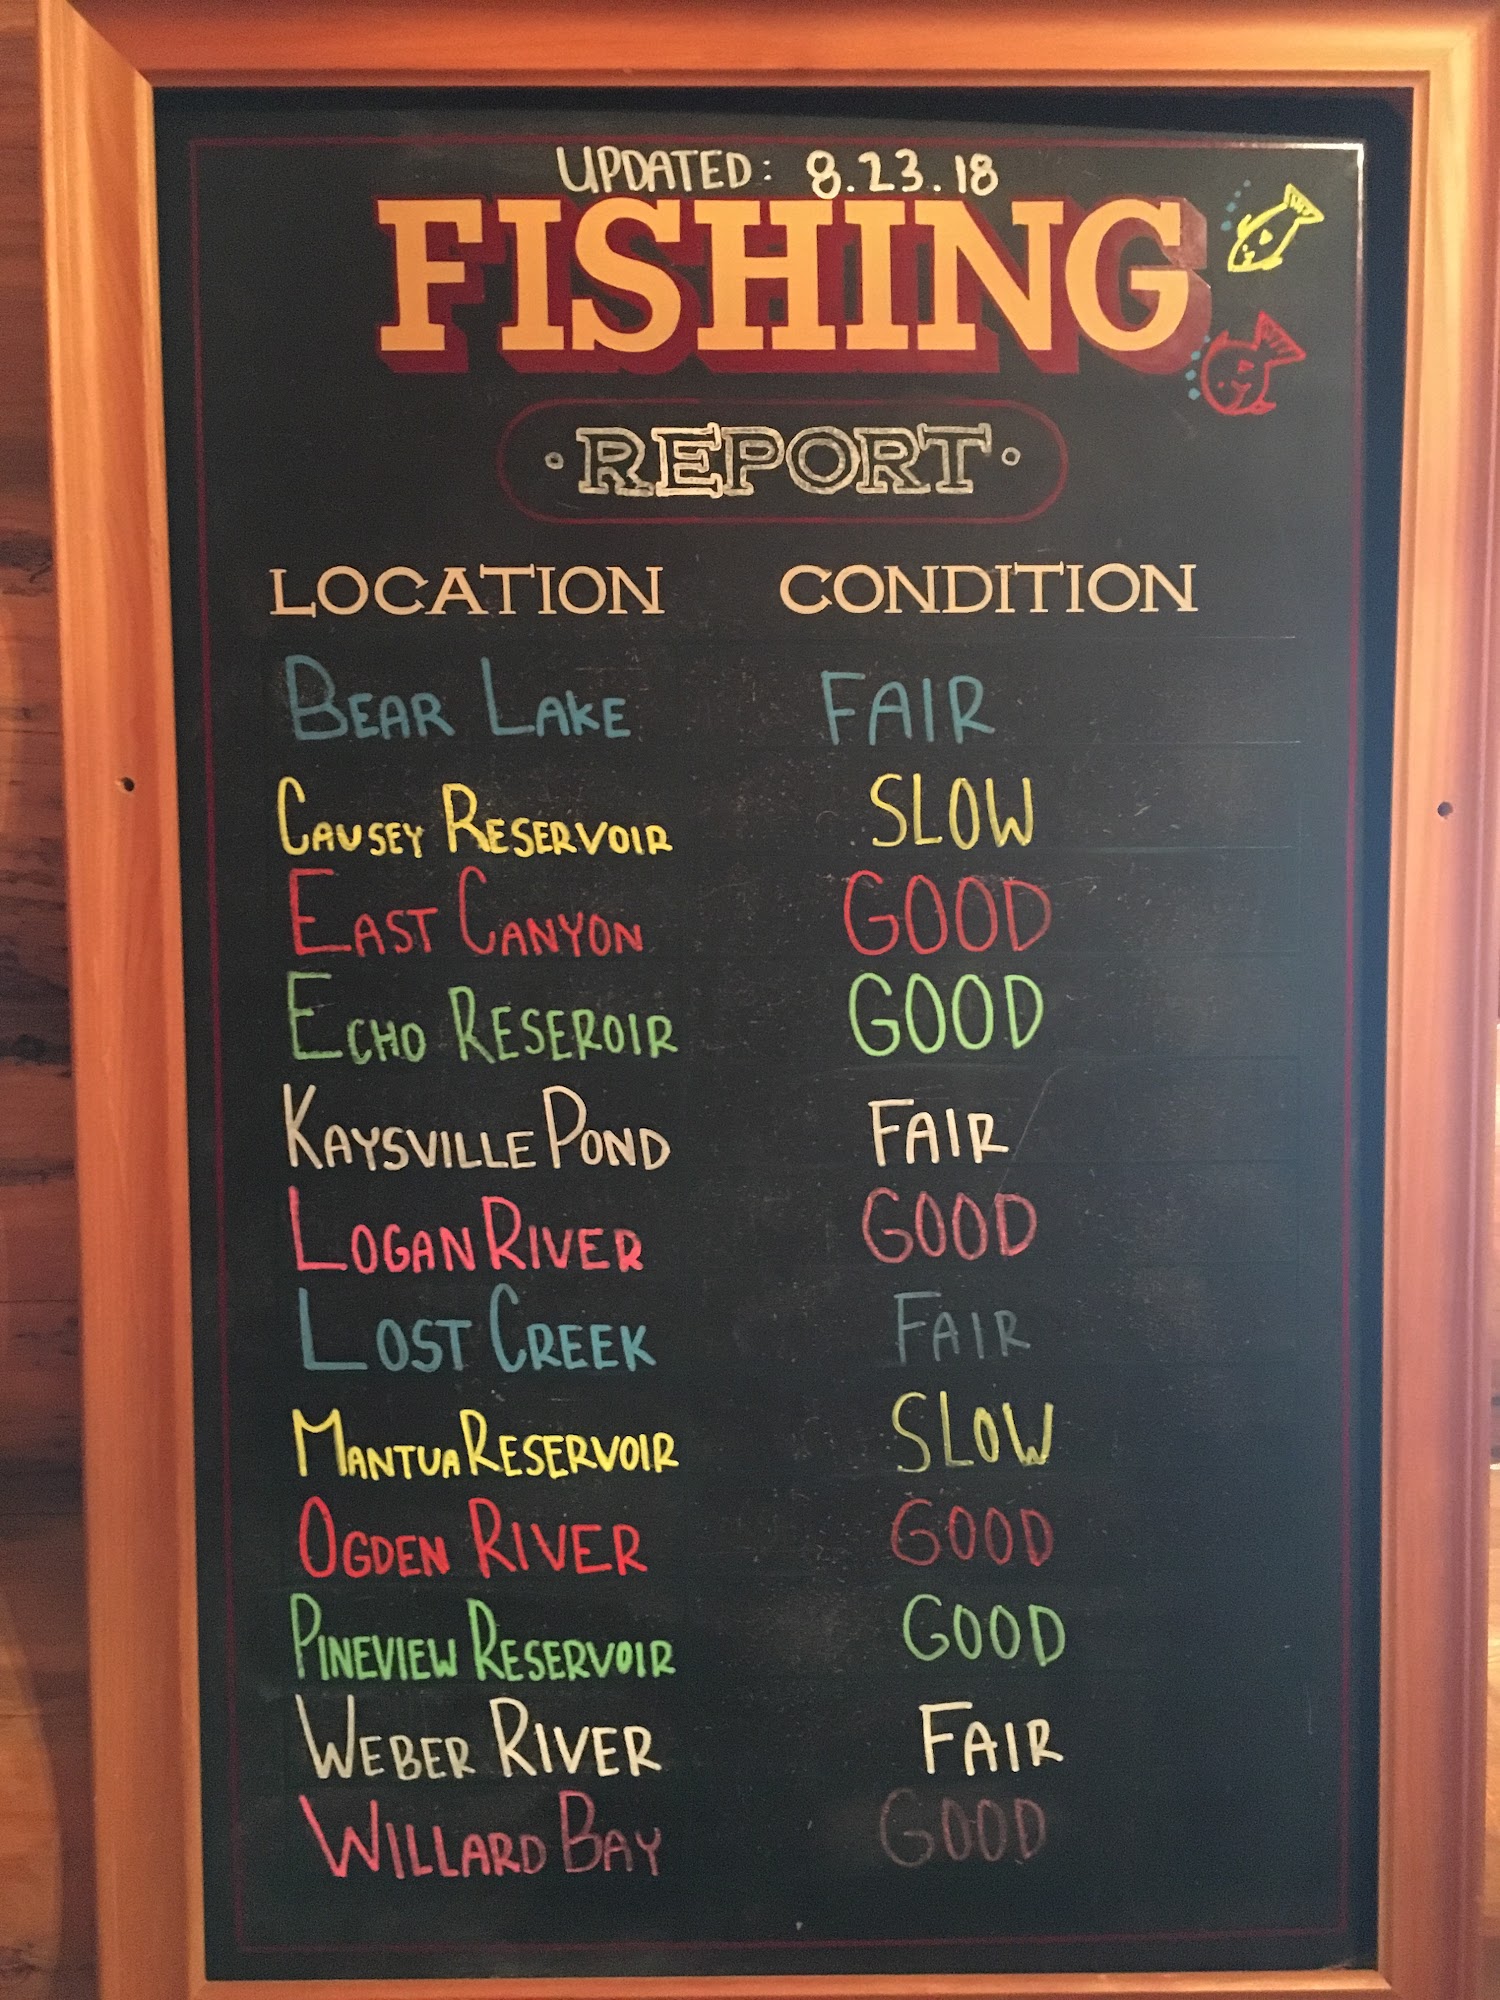 UPDATED: 8.23.18
FISHING
·REPORT·
LOCATION CONDITION
BEAR LAKE FAIR
CAUSEY RESERVOIR SLOW
EAST CANYON GOOD
ECHO RESEROIR GOOD
KAYSVILLE POND FAIR
LOGAN RIVER GOOD
LOST CREEK FAIR
MANTUA RESERVOIR SLOW
OGDEN RIVER GOOD
PINEVIEW RESERVOIR GOOD
WEBER RIVER FAIR
WILLARD BAY GOOD